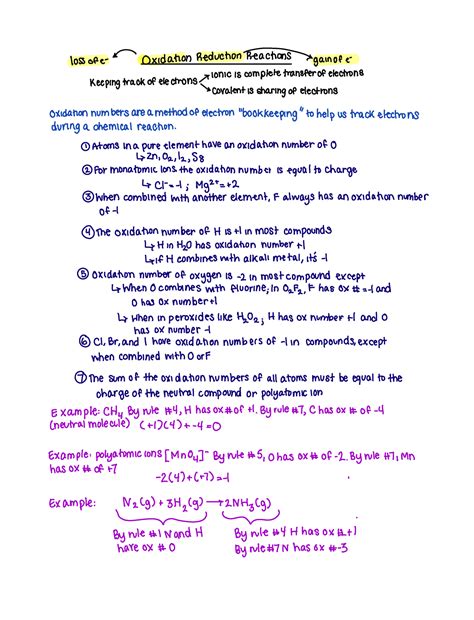 loss of e- Oxidation Reduction Reactions gain of e-
Keeping track of electrons
Ionic is complete transfer of electrons
Covalent is sharing of electrons
Oxidation numbers are a method of electron "bookkeeping" to help us track electrons
during a chemical reaction.
① Atoms in a pure element have an oxidation number of 0
↳ Zn, O₂, I₂, S₈
② For monatomic ions the oxidation number is equal to charge
↳ Cl⁻=-1 ; Mg²⁺=+2
③ When combined with another element, F always has an oxidation number
of -1
④ The oxidation number of H is +1 in most compounds
↳ H in H₂O has oxidation number +1
↳ if H combines with alkali metal, it's -1
⑤ Oxidation number of oxygen is -2 in most compound except
↳ When O combines with fluorine; in O₂F₂, F has ox # = -1 and
O has ox number +1
↳ When in peroxides like H₂O₂; H has ox number +1 and O
has ox number -1
⑥ Cl, Br, and I have oxidation numbers of -1 in compounds, except
when combined with O or F
⑦ The sum of the oxidation numbers of all atoms must be equal to the
charge of the neutral compound or polyatomic ion
Example: CH₄ By rule #4, H has ox # of +1. By rule #7, C has ox # of -4
(neutral molecule) (+1)(4)+-4=0
Example: polyatomic ions [MnO₄]⁻ By rule #5, O has ox # of -2. By rule #7, Mn
has ox # of +7
-2(4)+(+7)=-1
Example: N₂(g) + 3H₂(g) → 2NH₃(g)
By rule #1 N and H
have ox # 0
By rule #4 H has ox # +1
By rule #7 N has ox # -3